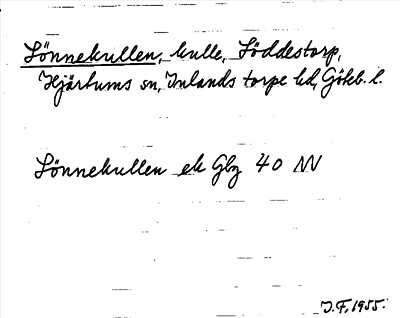 Lönnekullen, kulle, Löddestorp,
Hjärtums sn, Inlands torpe hd, Göteb. l.
Lönnekullen ek Gbg 40 NV
J.F, 1955.